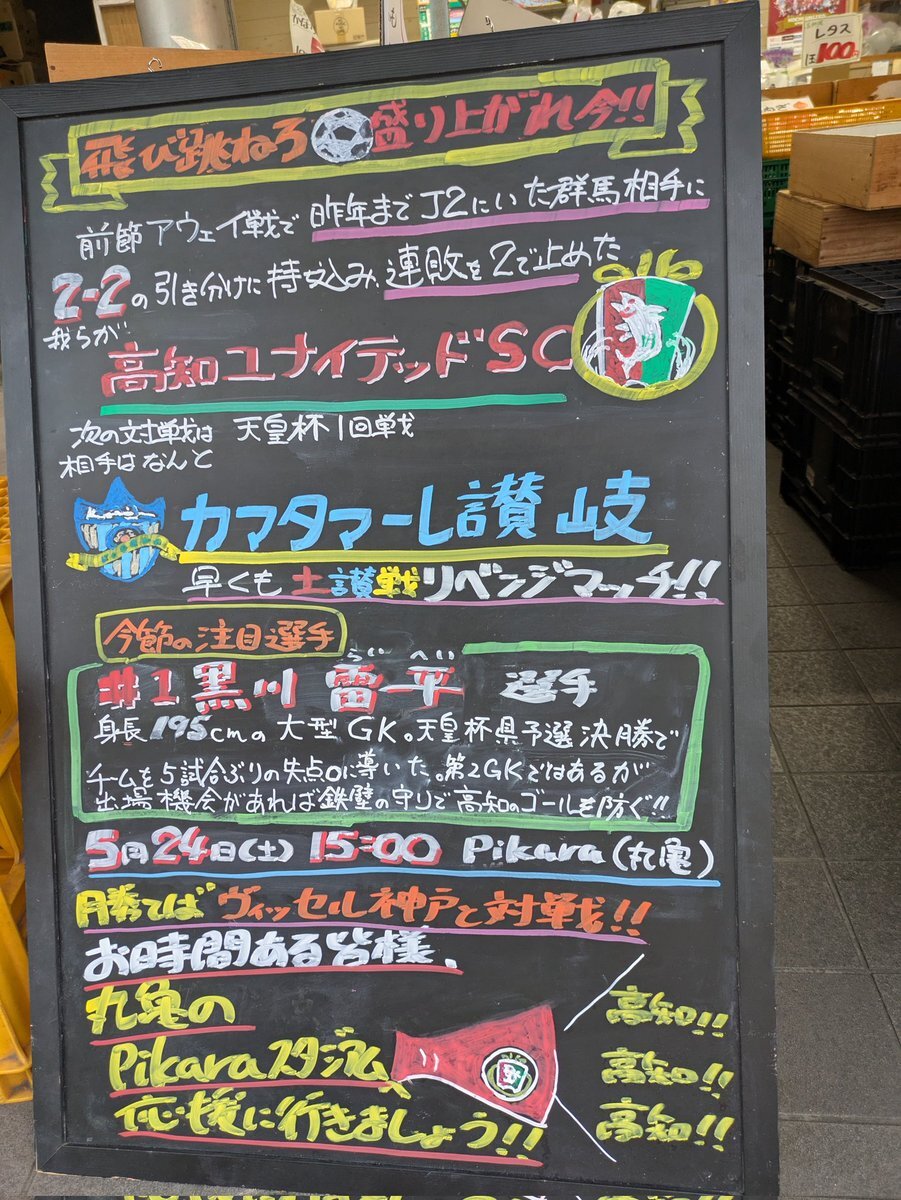 レタス
100円
飛び跳ねろ 盛り上がれ今!!
前節アウェイ戦で 昨年までJ2にいた群馬相手に
2-2の引き分けに持ち込み、連敗を2で止めた
我らが
高知ユナイテッドSC
次の対戦は 天皇杯1回戦
相手はなんと
カマタマーレ讃岐
早くも土讃戦リベンジマッチ!!
今節の注目選手
らいへい
#1 黒川 雷平 選手
身長195cmの大型GK。天皇杯県予選決勝で
チームを5試合ぶりの失点0に導いた。第2GKではあるが
出場機会があれば鉄壁の守りで高知のゴールを防ぐ!!
5月24日(土) 15:00 Pikara(丸亀)
勝てばヴィッセル神戸と対戦!!
お時間ある皆様、
丸亀の
Pikaraスタジアムへ
応援に行きましょう!!
高知!!
高知!!
高知!!